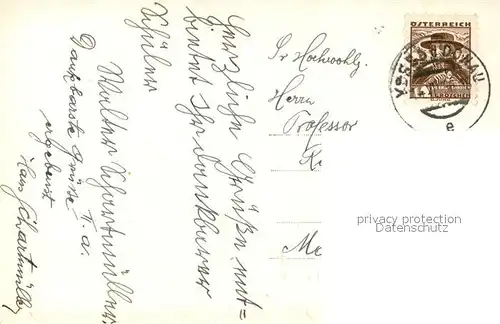 Herzliche Grüße ent=
bietet Ihr dankbarer
Schüler
Walter Schartmüller
Dankbarste Grüße
ergebenst
Hans Schartmüller
Sr Hochwohlg.
Herrn
Professor
ÖSTERREICH
12
YBBS A.D. DONAU
e
privacy protection
Datenschutz